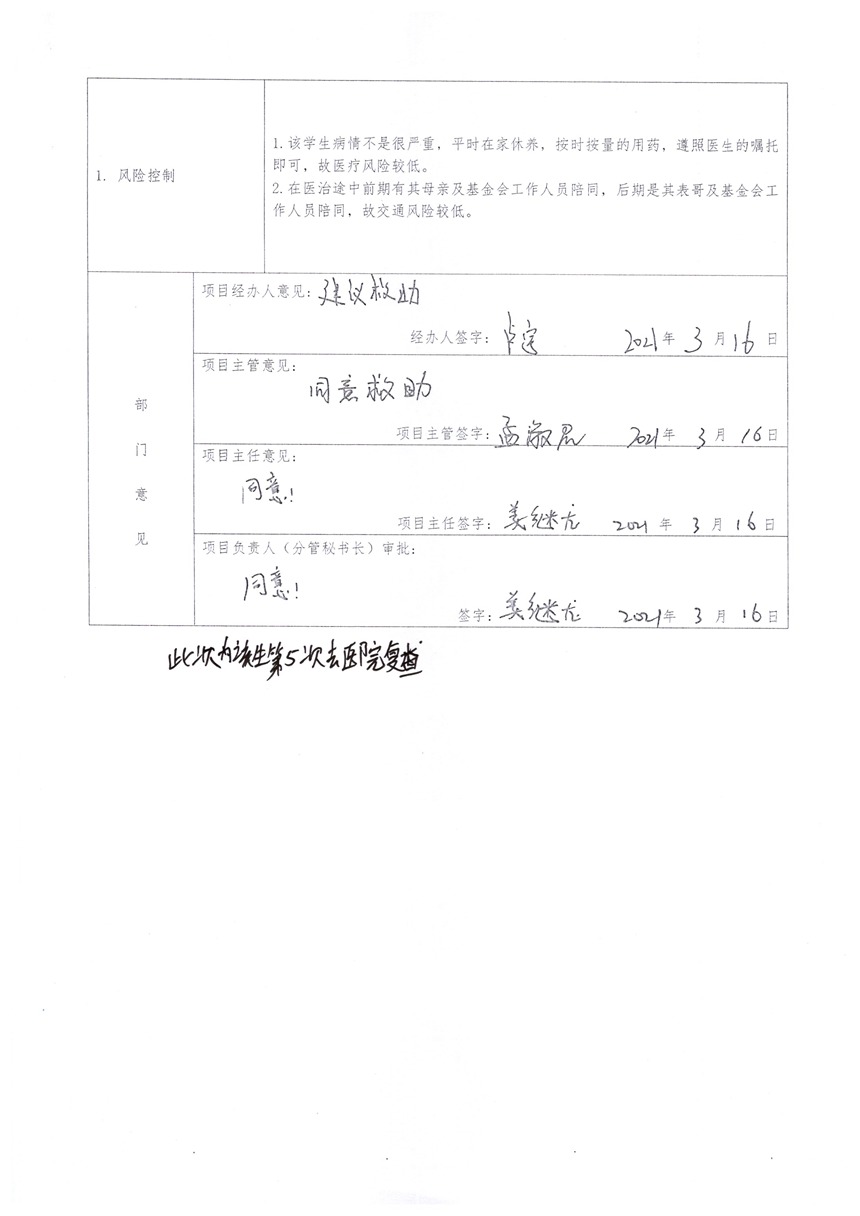 1. 风险控制
1.该学生病情不是很严重，平时在家休养，按时按量的用药，遵照医生的嘱托
即可，故医疗风险较低。
2.在医治途中前期有其母亲及基金会工作人员陪同，后期是其表哥及基金会工
作人员陪同，故交通风险较低。
部门意见
项目经办人意见：建议救助
经办人签字： 2021年 3 月 16 日
项目主管意见：
同意救助
项目主管签字：孟淑君 2021年 3 月 16 日
项目主任意见：
同意！
项目主任签字：姜继龙 2021 年 3 月 16 日
项目负责人（分管秘书长）审批：
同意！
签字：姜继龙 2021年 3 月 16 日
此次为该生第5次去医院复查